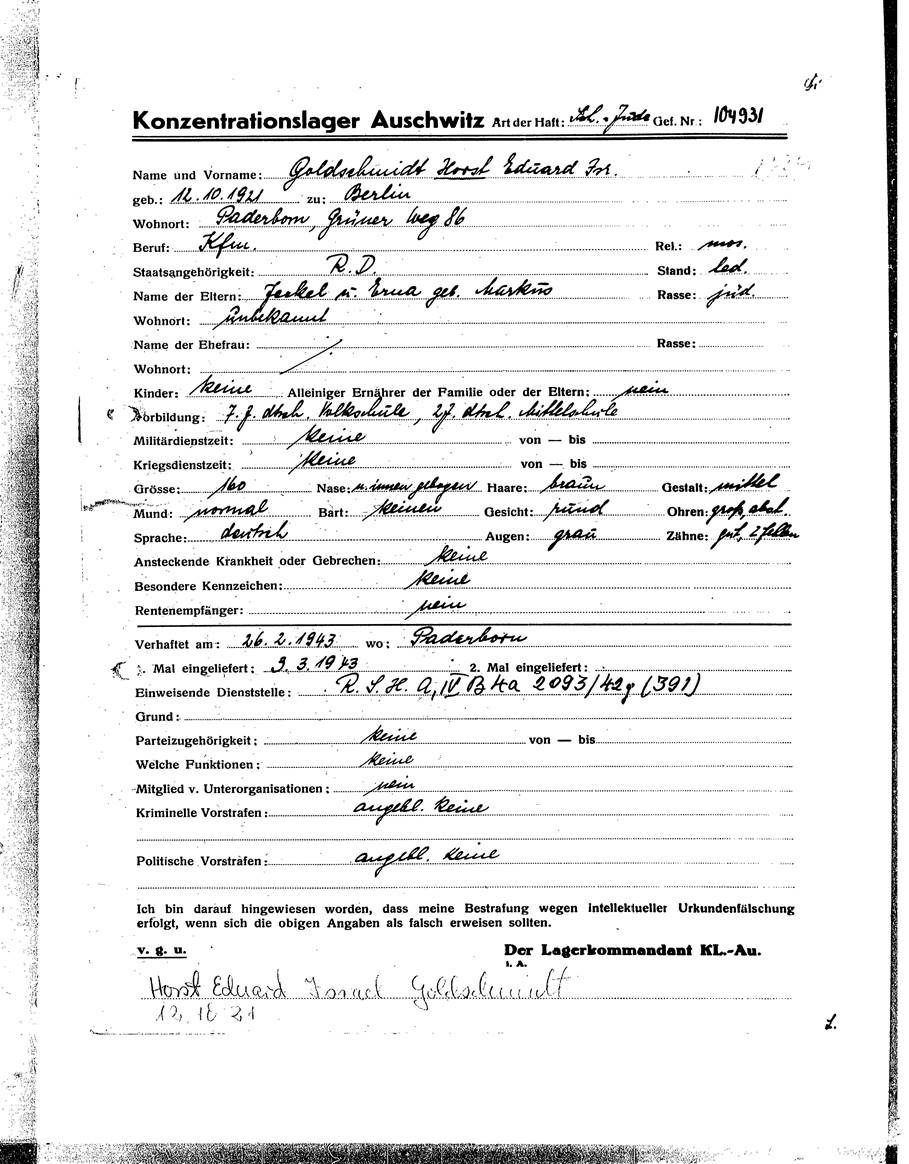 Konzentrationslager Auschwitz Art der Haft: Sch.-Jude Gef. Nr.: 104931
Name und Vorname: Goldschmidt Horst Eduard Isr.
geb.: 12.10.1921 zu: Berlin
Wohnort: Paderborn, Grüner Weg 86
Beruf: Kfm. Rel.: mos.
Staatsangehörigkeit: R.D. Stand: led.
Name der Eltern: u. Erna geb. Markus Rasse: jüd.
Wohnort: unbekannt
Name der Ehefrau: Rasse:
Wohnort:
Kinder: keine Alleiniger Ernährer der Familie oder der Eltern: nein
Vorbildung: 7 J. dtsch. Volkschule, 2 J. dtsch. Mittelschule
Militärdienstzeit: keine von — bis
Kriegsdienstzeit: keine von — bis
Grösse: 160 Nase: n. innen gebogen Haare: braun Gestalt: mittel
Mund: normal Bart: keinen Gesicht: rund Ohren: groß, abst.
Sprache: deutsch Augen: grau Zähne: gut, 2 fehlen
Ansteckende Krankheit oder Gebrechen: keine
Besondere Kennzeichen: keine
Rentenempfänger: nein
Verhaftet am: 26.2.1943 wo: Paderborn
1. Mal eingeliefert: 3.3.1943 2. Mal eingeliefert:
Einweisende Dienststelle: R.S.H.A, IV B4a 2093/42g (391)
Grund:
Parteizugehörigkeit: keine von — bis
Welche Funktionen: keine
Mitglied v. Unterorganisationen: nein
Kriminelle Vorstrafen: angebl. keine
Politische Vorstrafen: angebl. keine
Ich bin darauf hingewiesen worden, dass meine Bestrafung wegen intellektueller Urkundenfälschung
erfolgt, wenn sich die obigen Angaben als falsch erweisen sollten.
v. g. u. Der Lagerkommandant KL.-Au.
i. A.
Horst Eduard Israel Goldschmidt